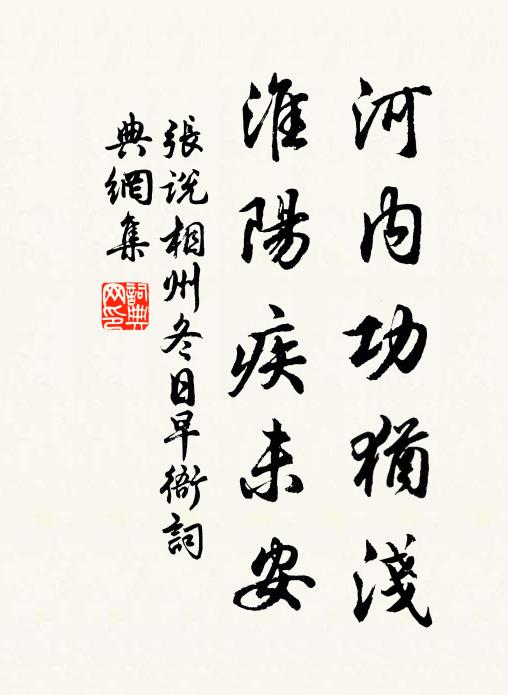 河内功猶淺
淮陽疾未安
張說相州冬日早衙詞
典網集
詞典网印